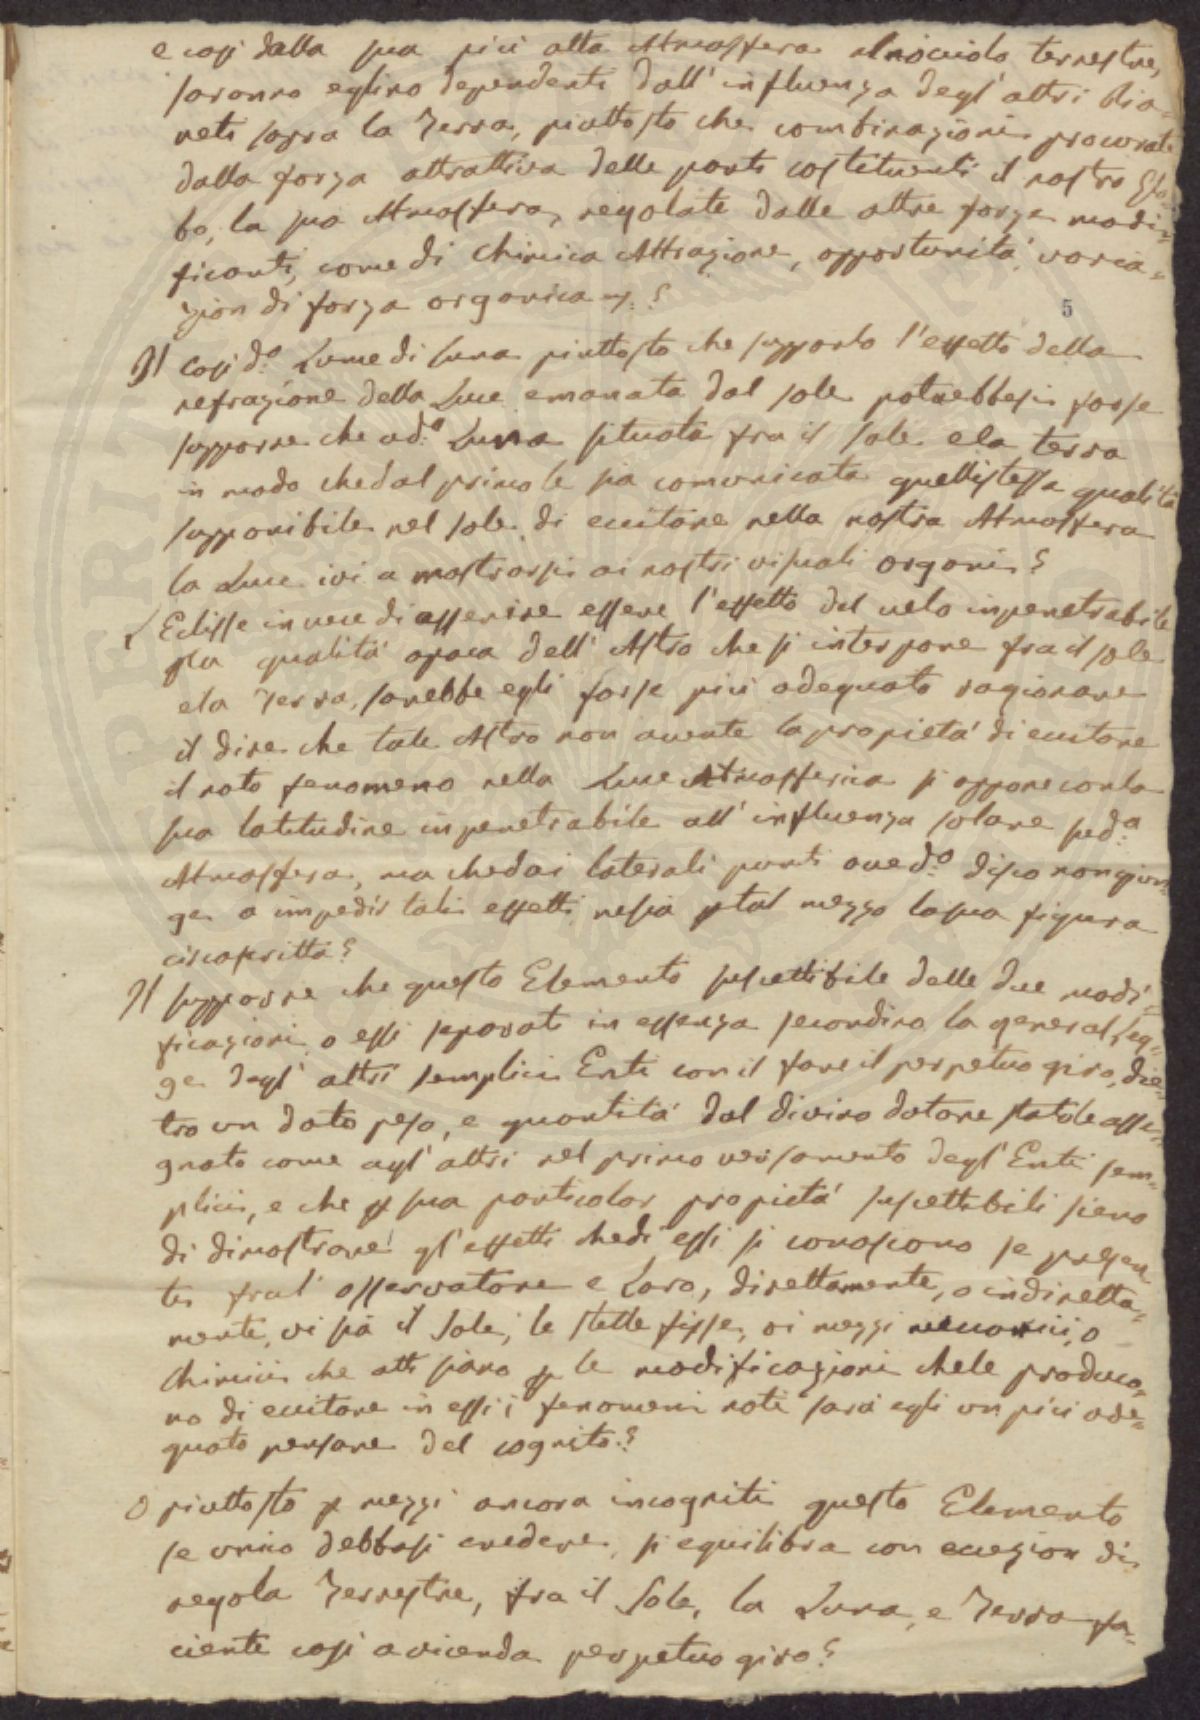 e così dalla sua più alta Atmosfera al nociulo terrestre,
saranno eglino dependenti dall' influenza degl' altri Pia-
neti sopra la Terra, piuttosto che combinazioni procurate
dalla forza attrattiva delle parti costituenti il nostro Glo-
bo, la sua Atmosfera, regolate dalle altre forze modi-
ficanti, come di Chimica Attrazione, opportunità, varia-
zion di forza organica ?
5
Il così d.º Lume di Luna piuttosto che supporlo l'effetto della
refrazione della Luce emanata dal sole potrebbesi forse
supporre che ad.ª Luna situata fra il sole e la terra
in modo che dal primo le sia comunicata quell'istessa qualità
supponibile nel sole di eccitare nella nostra Atmosfera
la Luce ivi a mostrarsi ai nostri visuali organi ?
L'Eclisse in vece di asserire essere l'effetto del velo inpenetrabile
p la qualità opaca dell' Astro che si interpone fra il sole
e la Terra, sarebbe egli forse più adeguato ragionare
il dire che tale Astro non avente la propietà di eccitare
il noto fenomeno nella Luce Atmosferica si oppone con la
sua latitudine inpenetrabile all' influenza solare su d.ª
Atmosfera, ma che dai laterali punti ove d.º disco non giun-
ge a impedir tali effetti ne sia p tal mezzo la sua figura
circoscritta ?
Il supporre che questo Elemento suscettibile delle due modi-
ficazioni o essi separati in essenza secondino la general Leg-
ge degl' altri semplici Enti con il fare il perpetuo giro, die-
tro un dato peso, e quantità dal divino datore statole asse-
gnato come agl' altri nel primo versamento degl' Enti sem-
plici, e che p sua particolar propietà suscettibili sieno
di dimostrare gl' effetti che di essi si conoscono se presen
te fral' osservatore e Loro, direttamente, o indiretta-
mente, vi sia il Sole, le stelle fisse, oi mezzi meccanici, o
Chimici che atti siano p le modificazioni che le produco-
no di eccitare in essi i fenomeni noti sarà egli un più ade-
guato pensare del cognito ?
O piuttosto p mezzi ancora incogniti questo Elemento
se unico debbasi credere, si equilibra con eccezion di
regola Terrestre, fra il Sole, la Luna, e Terra fa-
ciente così a vicenda perpetuo giro ?